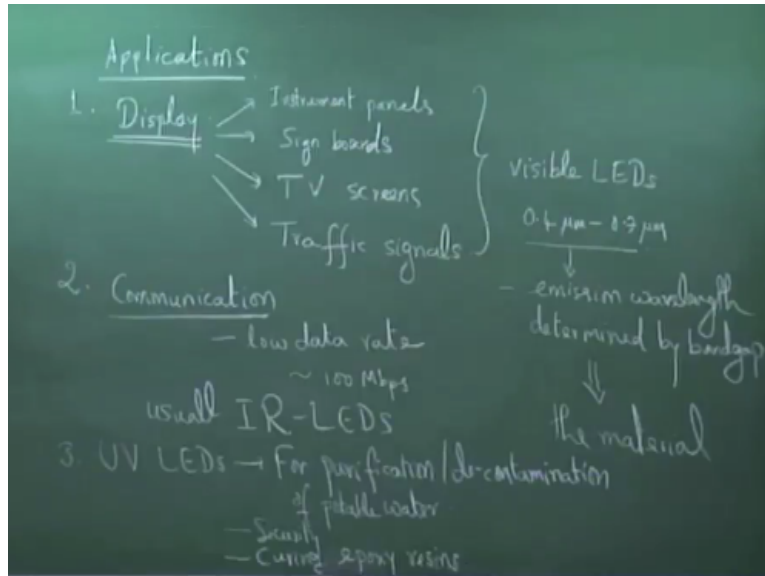 Applications
1. Display → Instrument panels
→ Sign boards
→ TV screens
→ Traffic signals
visible LEDs
0.4 μm – 0.7 μm
- emission wavelength
determined by bandgap
⇓
the material
2. Communication
- low data rate
~ 100 Mbps
usuall IR-LEDs
3. UV LEDs → For purification/de-contamination
of potable water
- Security
- Curing epoxy resins